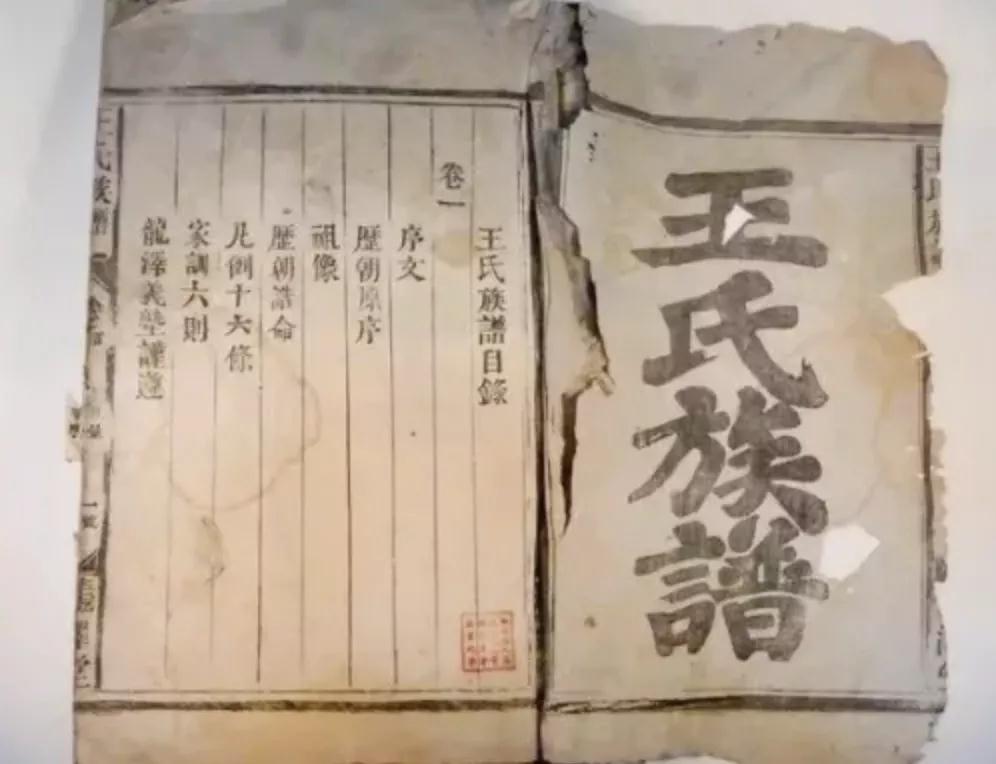 王氏族譜
王氏族譜目錄
卷一
序文
歷朝原序
祖像
歷朝誥命
凡例十六條
家訓六則
龍澤義塾謹遵
王氏族譜